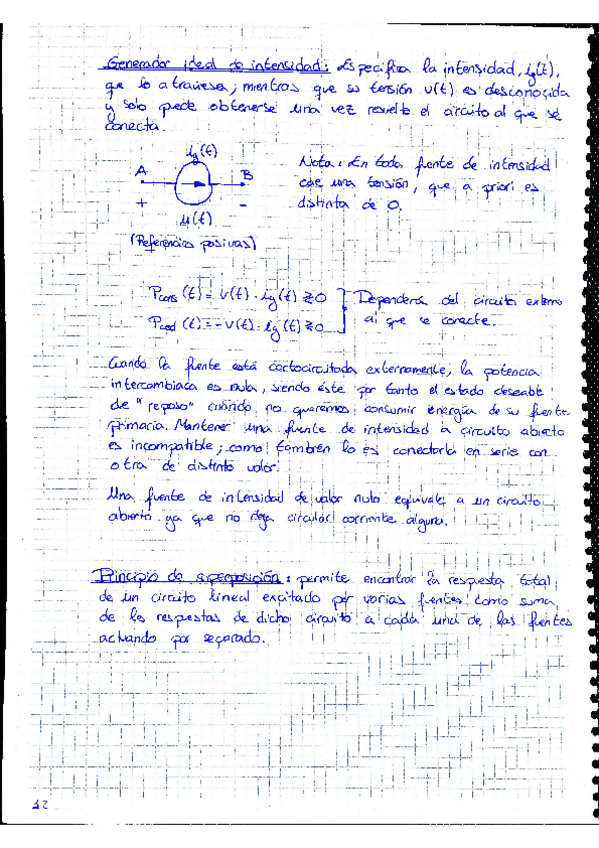 Generador ideal de intensidad: Especifica la intensidad, ig(t),
que lo atraviesa, mientras que su tensión v(t) es desconocida
y solo puede obtenerse una vez resuelto el circuito al que se
conecta.
ig(t)
A B
+ -
u(t)
(Referencias positivas)
Nota: En toda fuente de intensidad
cae una tensión, que a priori es
distinta de 0.
Pcons (t) = v(t) · ig(t) ≷ 0
Pced (t) = -v(t) · ig(t) ≷ 0
Dependerá del circuito externo
al que se conecte.
Cuando la fuente está cortocircuitada externamente, la potencia
intercambiada es nula, siendo éste por tanto el estado deseable
de "reposo" cuando no queremos consumir energía de su fuente
primaria. Mantener una fuente de intensidad a circuito abierto
es incompatible, como también lo es conectarla en serie con
otra de distinto valor.
Una fuente de intensidad de valor nulo equivale a un circuito
abierto ya que no deja circular corriente alguna.
Principio de superposición: permite encontrar la respuesta total
de un circuito lineal excitado por varias fuentes como suma
de las respuestas de dicho circuito a cada una de las fuentes
actuando por separado.